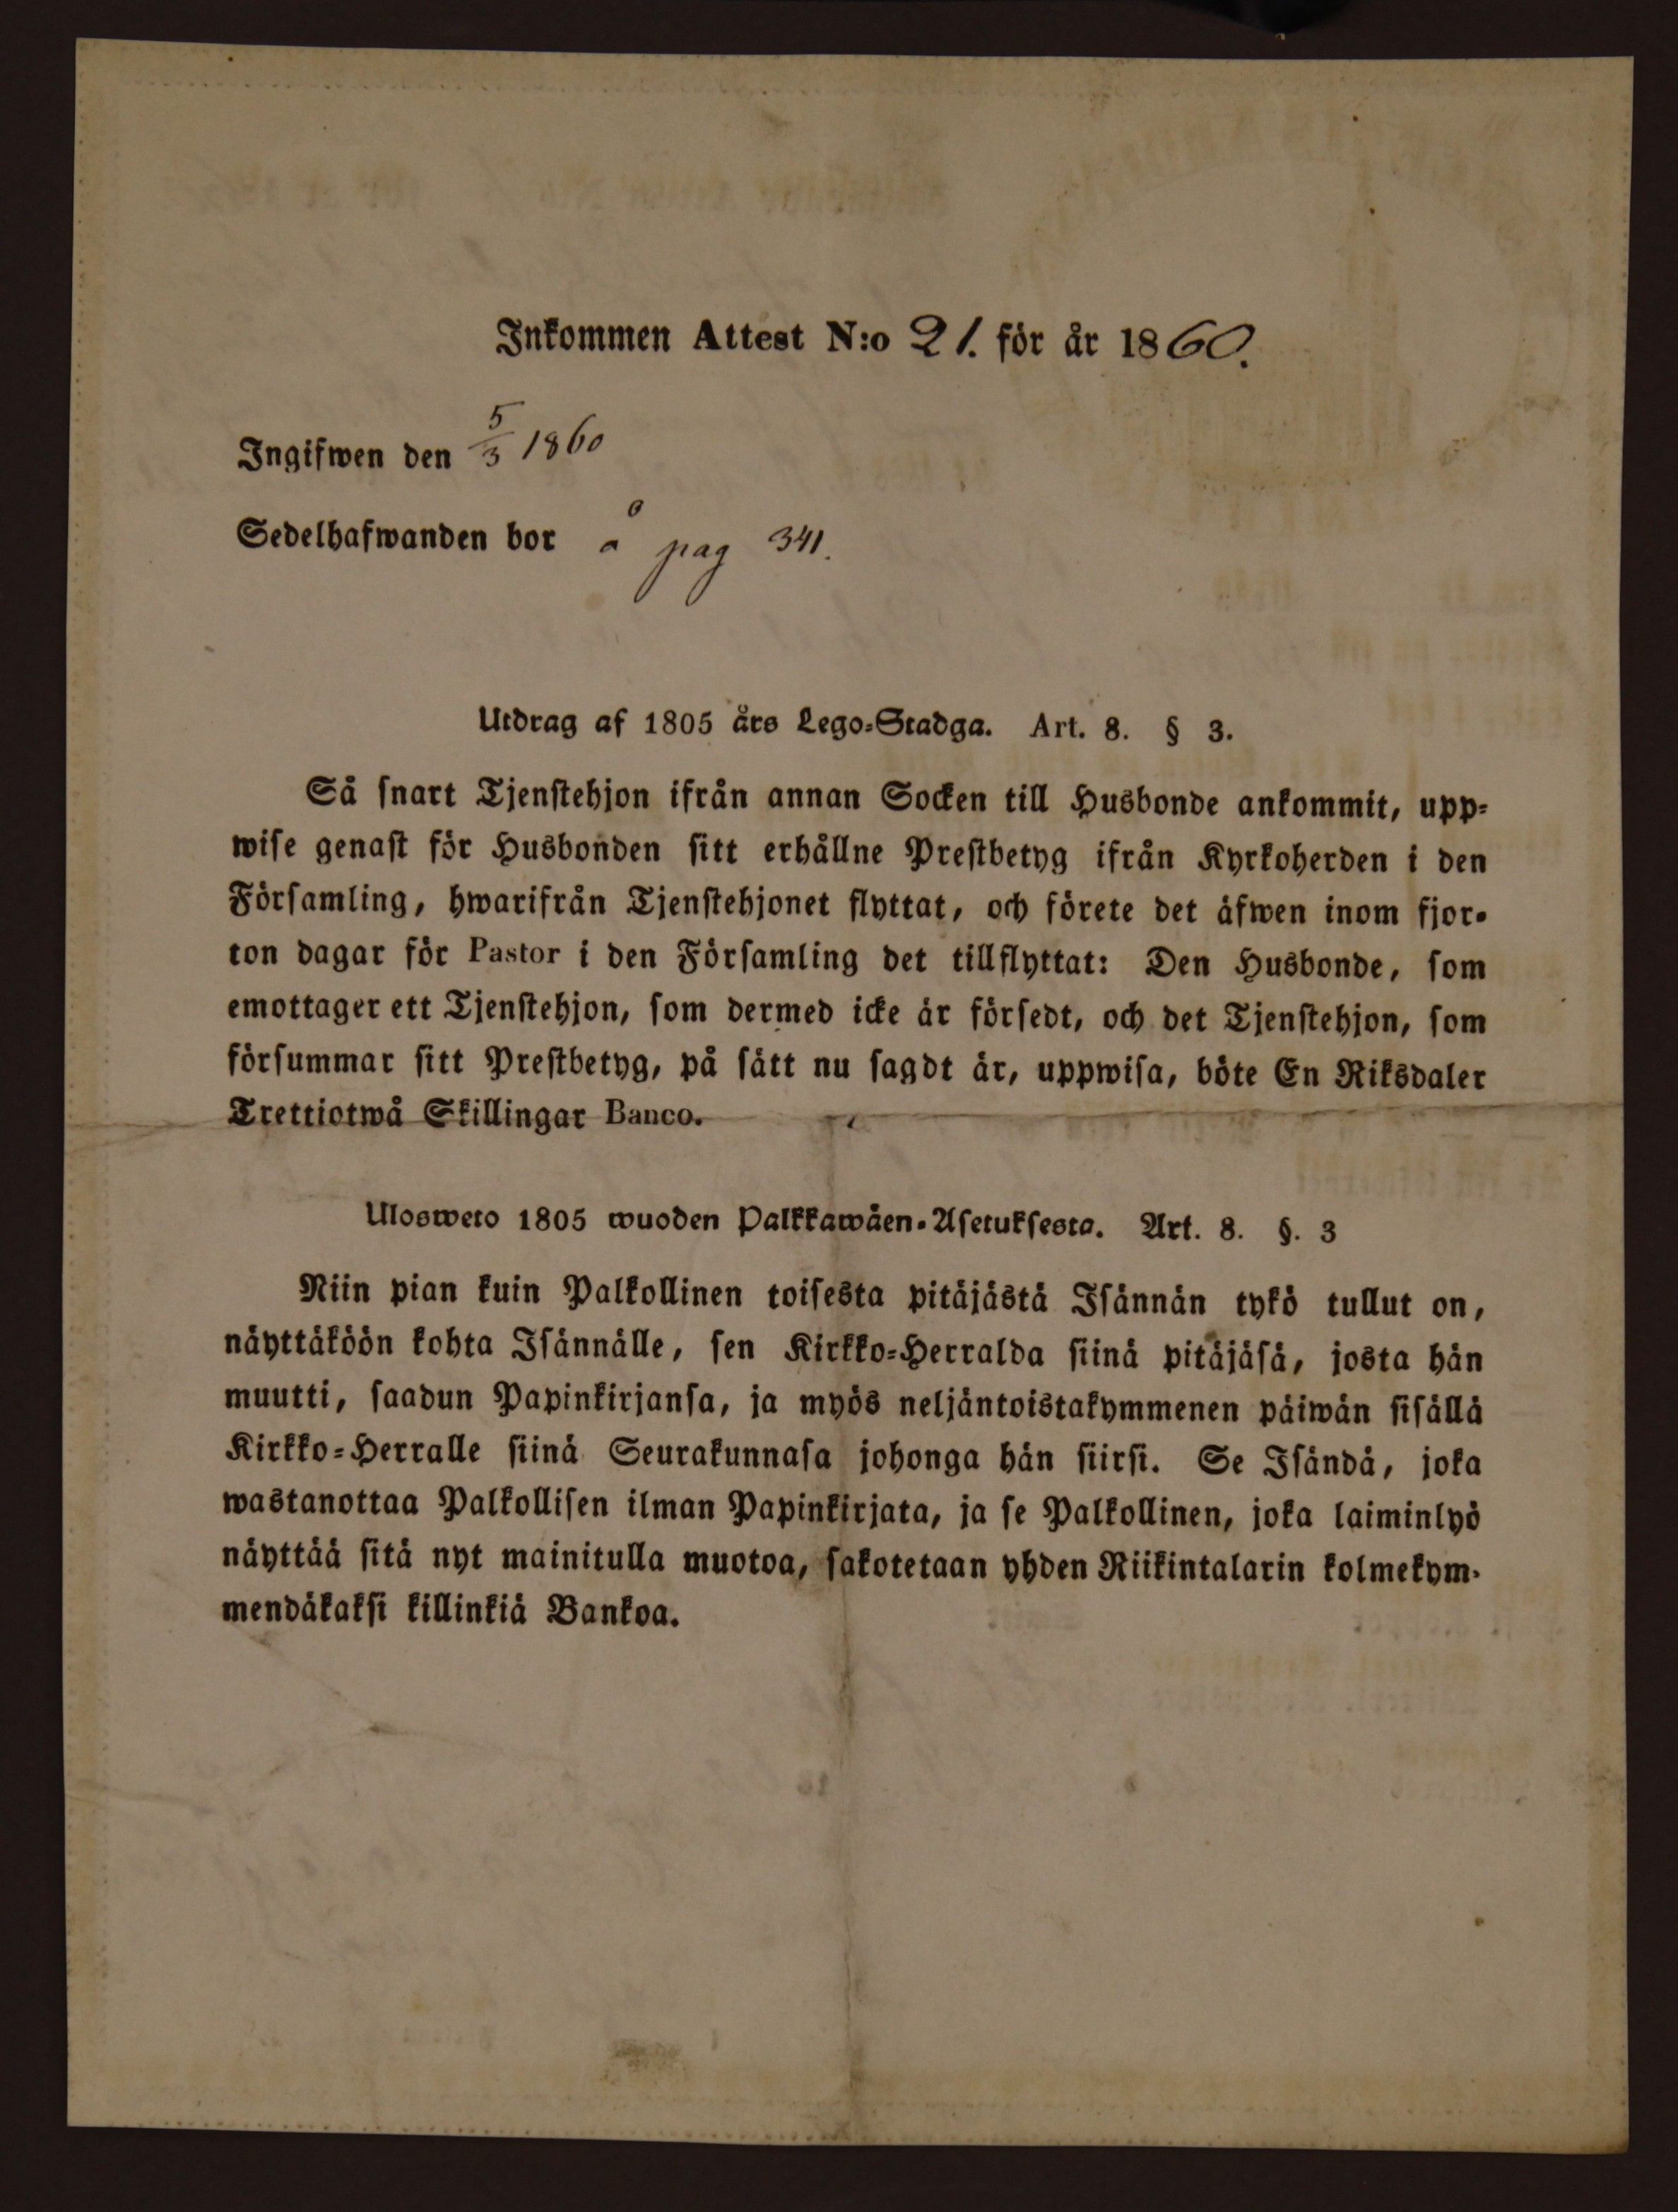 Inkommen Attest N:o 21. för år 1860.
Ingifwen den 5/3 1860
Sedelhafwanden bor å pag 341.
Utdrag af 1805 års Lego-Stadga. Art. 8. § 3.
Så snart Tjenstehjon ifrån annan Socken till Husbonde ankommit, upp-
wise genast för Husbonden sitt erhållne Prestbetyg ifrån Kyrkoherden i den
Församling, hwarifrån Tjenstehjonet flyttat, och förete det äfwen inom fjor-
ton dagar för Pastor i den Församling det tillflyttat: Den Husbonde, som
emottager ett Tjenstehjon, som dermed icke är försedt, och det Tjenstehjon, som
försummar sitt Prestbetyg, på sätt nu sagdt är, uppwisa, böte En Riksdaler
Trettiotwå Skillingar Banco.
Ulosweto 1805 wuoden Palkkawäen-Asetuksesta. Art. 8. §. 3
Niin pian kuin Palkollinen toisesta pitäjästä Isännän tykö tullut on,
näyttäköön kohta Isännälle, sen Kirkko-Herralda siinä pitäjäsä, josta hän
muutti, saadun Papinkirjansa, ja myös neljäntoistakymmenen päiwän sisällä
Kirkko-Herralle siinä Seurakunnasa johonga hän siirsi. Se Isändä, joka
wastanottaa Palkollisen ilman Papinkirjata, ja se Palkollinen, joka laiminlyö
näyttää sitä nyt mainitulla muotoa, sakotetaan yhden Riikintalarin kolmekym-
mendäkaksi killinkiä Bankoa.